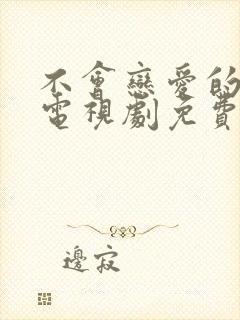 不會戀愛的
電視劇免費
邊寂